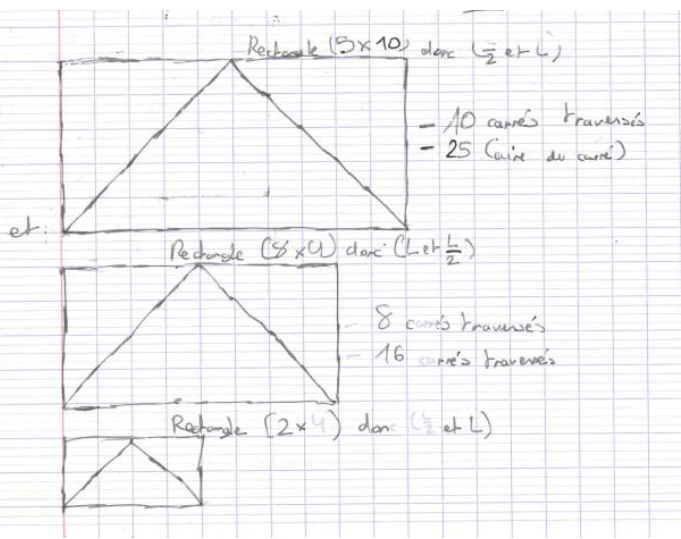 Rectangle (5x10) donc (L/2 et L)
- 10 carrés traversés
- 25 (aire du carré)
et :
Rectangle (8x4) donc (L et L/2)
- 8 carrés traversés
- 16 carrés traversés
Rectangle (2x4) donc (L/2 et L)